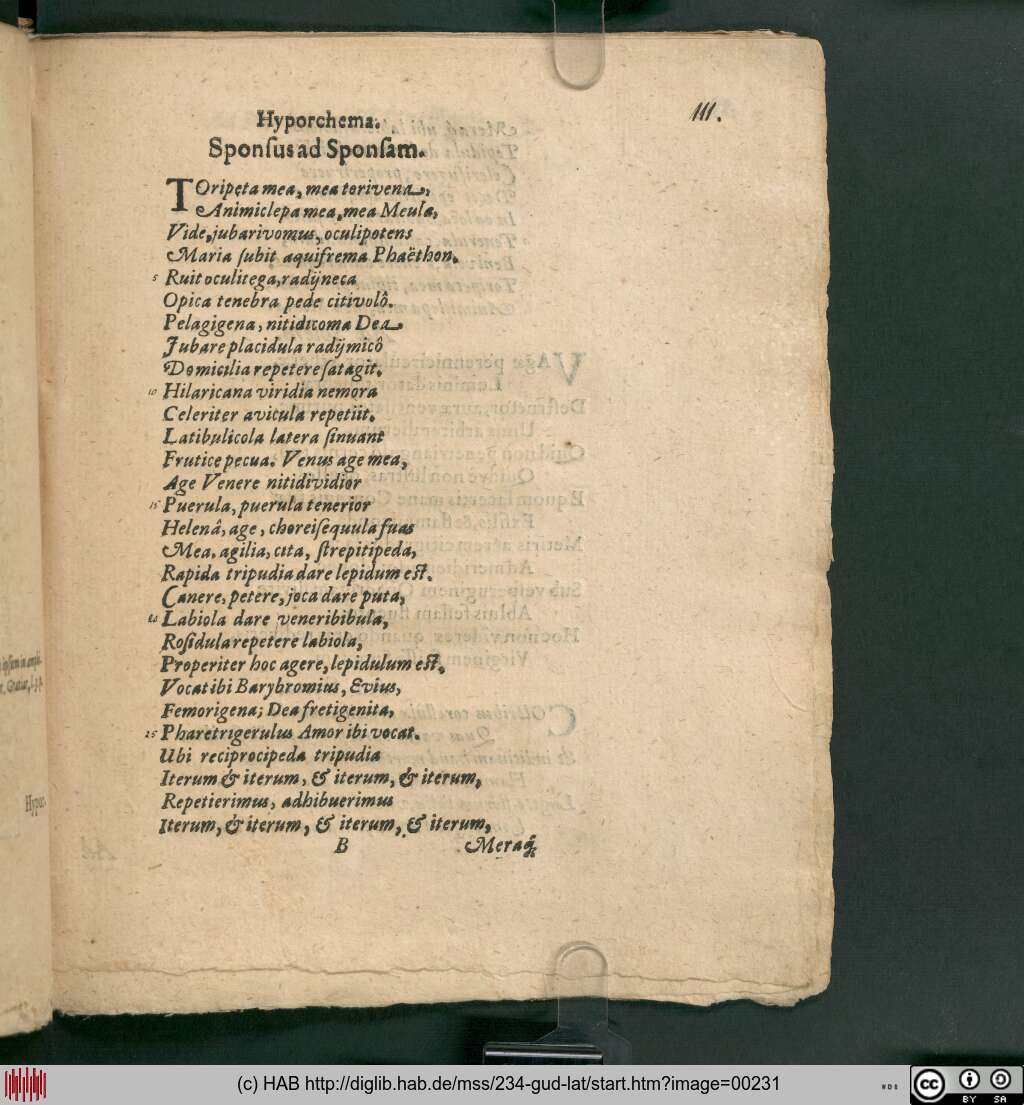 111.
Hyporchema.
Sponſus ad Sponſam.
TOripeta mea, mea torivena,
Animiclepa mea, mea Meula,
Vide, jubarivomus, oculipotens
Maria ſubit aquifrema Phaëthon.
5 Ruit oculitega, radijneca
Opica tenebra pede citivolô.
Pelagigena, nitidicoma Dea
Jubare placidula radijmicô
Domicilia repetere ſatagit.
10 Hilaricana viridia nemora
Celeriter avicula repetiit.
Latibulicola latera ſinuant
Frutice pecua. Venus age mea,
Age Venere nitidividior
15 Puerula, puerula tenerior
Helenâ, age, choreiſequula fuas
Mea, agilia, cita, ſtrepitipeda,
Rapida tripudia dare lepidum eſt.
Canere, petere, joca dare puta,
20 Labiola dare veneribibula,
Roſidula repetere labiola,
Properiter hoc agere, lepidulum eſt,
Vocat ibi Barybromius, Eviûs,
Femorigena; Dea fretigenita,
25 Pharetrigerulus Amor ibi vocat.
Ubi reciprocipeda tripudia
Iterum & iterum, & iterum, & iterum,
Repetierimus, adhibuerimus
Iterum, & iterum, & iterum, & iterum,
B Meraq́;
Hypor-
(c) HAB http://diglib.hab.de/mss/234-gud-lat/start.htm?image=00231
WDB
cc BY SA